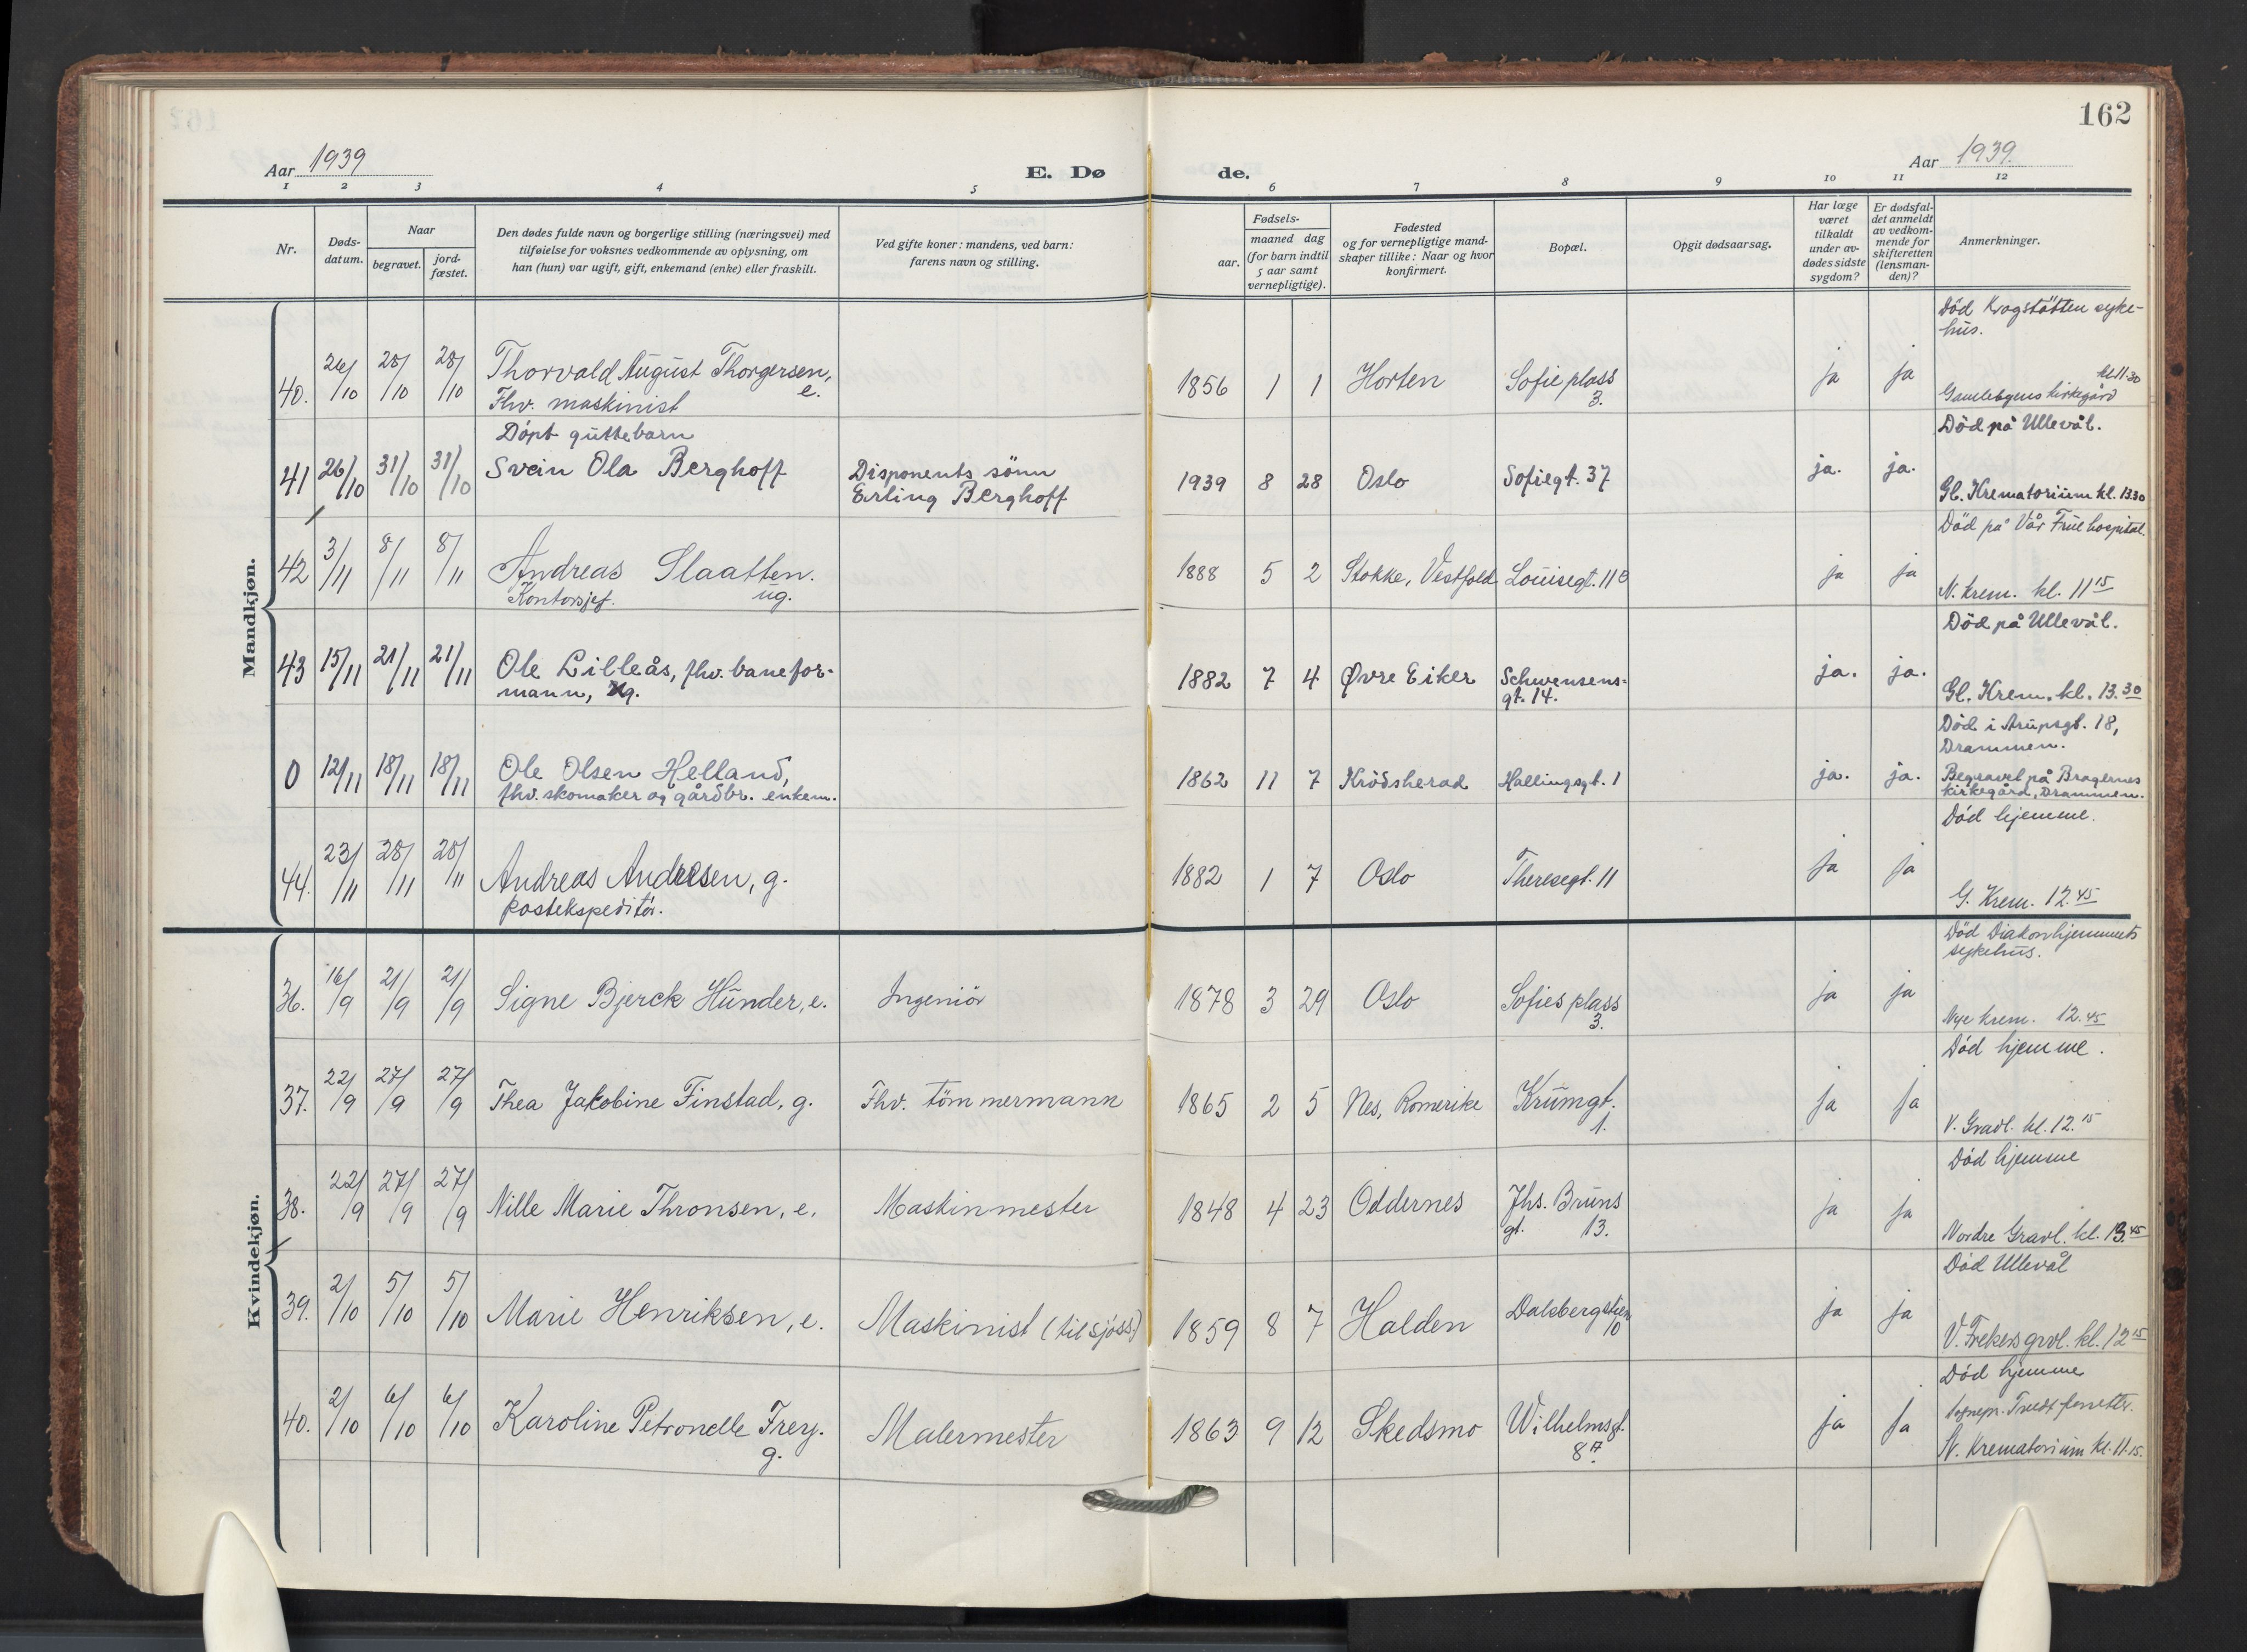 162
Aar 1939
E. Dø de.
Aar 1939.
1 2 3 4 5 6 7 8 9 10 11 12
Nr.
Døds-
datum.
Naar
begravet.
jord-
fæstet.
Den dødes fulde navn og borgerlige stilling (næringsvei) med
tilføielse for voksnes vedkommende av oplysning, om
han (hun) var ugift, gift, enkemand (enke) eller fraskilt.
Ved gifte koner: mandens, ved barn:
farens navn og stilling.
Fødsels-
aar.
maaned dag
(for barn indtil
5 aar samt
vernepligtige).
Fødested
og for vernepligtige mand-
skaper tillike: Naar og hvor
konfirmert.
Bopæl.
Opgit dødsaarsag.
Har læge
været
tilkaldt
under av-
dødes sidste
sygdom?
Er dødsfal-
det anmeldt
av vedkom-
mende for
skifteretten
(lensman-
den)?
Anmerkninger.
Mandkjøn.
Død Krogstøtten syke-
hus.
40. 26/10 28/10 28/10 Thorvald August Thorgersen, e. 1856 1 1 Horten Sofie plass 3. ja ja kl 11.30
Fhv. maskinist Gamlebyens kirkegård
Døpt guttebarn Død på Ullevål.
41 26/10 31/10 31/10 Svein Ola Berghoff Disponents sønn 1939 8 28 Oslo Sofiegt. 37 ja. ja.
Erling Berghoff Gl. Krematorium kl. 13.30
Død på Vår Frue hospital.
42 3/11 8/11 8/11 Andreas Slaatten. 1888 5 2 Stokke, Vestfold Louisegt. 11 ja ja
Kontorsjef. ug. N. Krem. kl. 11 15
Død på Ullevål.
43 15/11 21/11 21/11 Ole Lilleås, fhv. banefor- 1882 7 4 Øvre Eiker Schwensens- ja. ja.
mann, g. gt. 14. Gl. Krem. kl. 13.30
Død i Arupsgt. 18,
Drammen.
0 12/11 18/11 18/11 Ole Olsen Helland, 1862 11 7 Krødsherad Hallingsgt. 1 ja. ja. Begravet på Bragernes
fhv. skomaker og gårdbr. enkem. kirkegård, Drammen.
Død hjemme.
44. 23/11 28/11 28/11 Andreas Andresen, g. 1882 1 7 Oslo Theresegt. 11 ja ja
postekspeditør. G. Krem. 12.45
Kvindekjøn.
Død Diakonhjemmets
sykehus.
36. 16/9 21/9 21/9 Signe Bjerck Hunder, e. Ingeniør 1878 3 29 Oslo Sofies plass 3. ja ja
Nye krem. 12.45
Død hjemme.
37. 22/9 27/9 27/9 Thea Jakobine Finstad, g. Fhv. tømmermann 1865 2 5 Nes, Romerike Krumgt. 1. ja ja
V. Gravl. kl. 12.15
Død hjemme
38. 22/9 27/9 27/9 Nille Marie Thronsen, e. Maskinmester 1848 4 23 Oddernes Jhs. Bruns ja ja
gt. 13. Nordre Gravl. kl. 13.45
Død Ullevål
39. 2/10 5/10 5/10 Marie Henriksen, e. Maskinist (til sjøss.) 1859 8 7 Halden Dalsbergstien 10 ja ja
V. Frekers grvl. kl. 12 15
Død hjemme
40. 2/10 6/10 6/10 Karoline Petronelle Frey. Malermester 1863 9 12 Skedsmo Wilhelmsgt. ja ja
g. 8 N. Krematorium kl. 11.15.